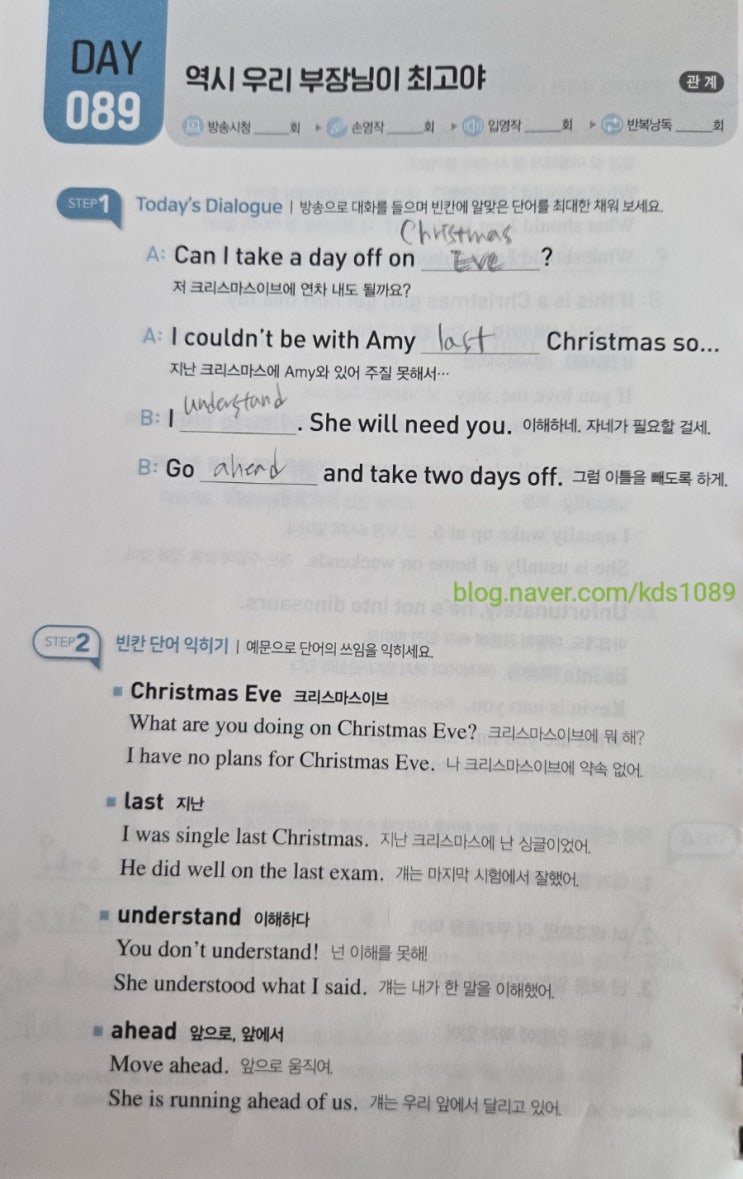 DAY
089
역시 우리 부장님이 최고야
관계
방송시청 _____회 ▸ 손영작 _____회 ▸ 입영작 _____회 ▸ 반복낭독 _____회
STEP1 Today's Dialogue | 방송으로 대화를 들으며 빈칸에 알맞은 단어를 최대한 채워 보세요.
A: Can I take a day off on Christmas Eve?
저 크리스마스이브에 연차 내도 될까요?
A: I couldn't be with Amy last Christmas so...
지난 크리스마스에 Amy와 있어 주질 못해서…
B: I understand. She will need you. 이해하네. 자네가 필요할 걸세.
B: Go ahead and take two days off. 그럼 이틀을 빼도록 하게.
blog.naver.com/kds1089
STEP2 빈칸 단어 익히기 | 예문으로 단어의 쓰임을 익히세요.
■ Christmas Eve 크리스마스이브
What are you doing on Christmas Eve? 크리스마스이브에 뭐 해?
I have no plans for Christmas Eve. 나 크리스마스이브에 약속 없어.
■ last 지난
I was single last Christmas. 지난 크리스마스에 난 싱글이었어.
He did well on the last exam. 걔는 마지막 시험에서 잘했어.
■ understand 이해하다
You don't understand! 넌 이해를 못해!
She understood what I said. 걔는 내가 한 말을 이해했어.
■ ahead 앞으로, 앞에서
Move ahead. 앞으로 움직여.
She is running ahead of us. 걔는 우리 앞에서 달리고 있어.